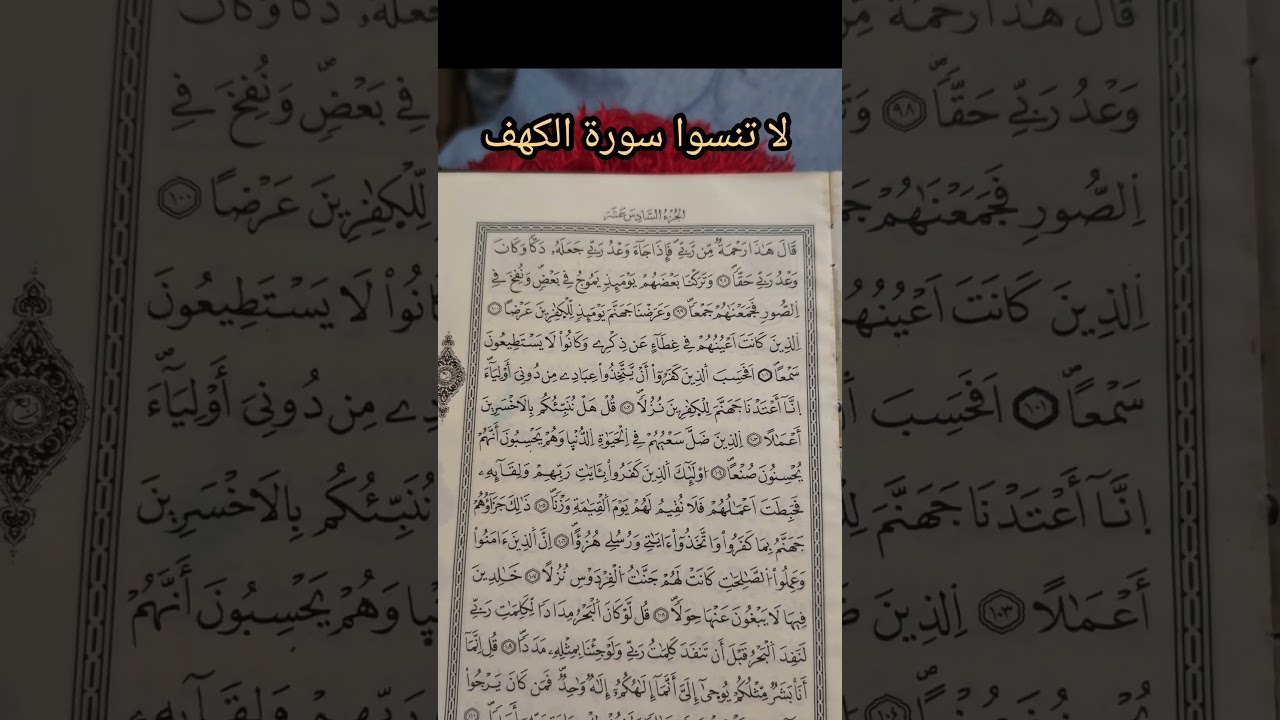 لا تنسوا سورة الكهف
الجزء السادس عشر
قَالَ هَٰذَا رَحْمَةٌ مِّن رَّبِّے فَإِذَا جَآءَ وَعْدُ رَبِّے جَعَلَهُۥ دَكّاً وَكَانَ
وَعْدُ رَبِّے حَقّاًۖ ٩٨ وَتَرَكْنَا بَعْضَهُمْ يَوْمَئِذٍ يَمُوجُ فِے بَعْضٍ وَنُفِخَ فِے
اِ۬لصُّورِ فَجَمَعْنَٰهُمْ جَمْعاًۖ ٩٩ وَعَرَضْنَا جَهَنَّمَ يَوْمَئِذٍ لِّلْكٰ۪فِرِينَ عَرْضاً ١٠٠
اِ۬لذِينَ كَانَتَ اَعْيُنُهُمْ فِے غِطَآءٍ عَن ذِكْرِے وَكَانُواْ لَا يَسْتَطِيعُونَ
سَمْعاًۖ ١٠١ اَفَحَسِبَ اَ۬لذِينَ كَفَرُوٓاْ أَنْ يَّتَّخِذُواْ عِبَادِے مِن دُونِيَ أَوْلِيَآءَۖ
اِنَّآ أَعْتَدْنَا جَهَنَّمَ لِلْكٰ۪فِرِينَ نُزُلاًۖ ١٠٢ قُلْ هَلْ نُنَبِّئُكُم بِالَاخْسَرِينَ
أَعْمَٰلاً ١٠٣ اِ۬لذِينَ ضَلَّ سَعْيُهُمْ فِے اِ۬لْحَيَوٰةِ اِ۬لدُّنْي۪ا وَهُمْ يَحْسِبُونَ أَنَّهُمْ
يُحْسِنُونَ صُنْعاًۖ ١٠٤ اُوْلَٰٓئِكَ اَ۬لذِينَ كَفَرُواْ بِـَٔايَٰتِ رَبِّهِمْ وَلِقَآئِهِۦ
فَحَبِطَتَ اَعْمَٰلُهُمْ فَلَا نُقِيمُ لَهُمْ يَوْمَ اَ۬لْقِيَٰمَةِ وَزْناًۖ ١٠٥ ذَٰلِكَ جَزَآؤُهُمْ
جَهَنَّمُ بِمَا كَفَرُواْ وَاتَّخَذُوٓاْ ءَايَٰتِے وَرُسُلِے هُزُؤاًۖ ١٠٦ اِنَّ اَ۬لذِينَ ءَامَنُواْ
وَعَمِلُواْ اُ۬لصَّٰلِحَٰتِ كَانَتْ لَهُمْ جَنَّٰتُ اُ۬لْفِرْدَوْسِ نُزُلاً ١٠٧ خَٰلِدِينَ
فِيهَا لَا يَبْغُونَ عَنْهَا حِوَلاًۖ ١٠٨ قُل لَّوْ كَانَ اَ۬لْبَحْرُ مِدَاداً لِّكَلِمَٰتِ رَبِّے
لَنَفِدَ اَ۬لْبَحْرُ قَبْلَ أَن تَنفَدَ كَلِمَٰتُ رَبِّے وَلَوْ جِئْنَا بِمِثْلِهِۦ مَدَداًۖ ١٠٩ قُلِ اِنَّمَآ
أَنَا بَشَرٌ مِّثْلُكُمْ يُوحَىٰٓ إِلَيَّ أَنَّمَآ إِلَٰهُكُمُۥٓ إِلَٰهٌ وَٰحِدٌۖ فَمَن كَانَ يَرْجُواْ
ربع